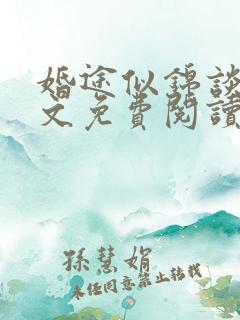 婚途似錦談
文免費閱讀
孫慧娟
未經同意禁止轉載